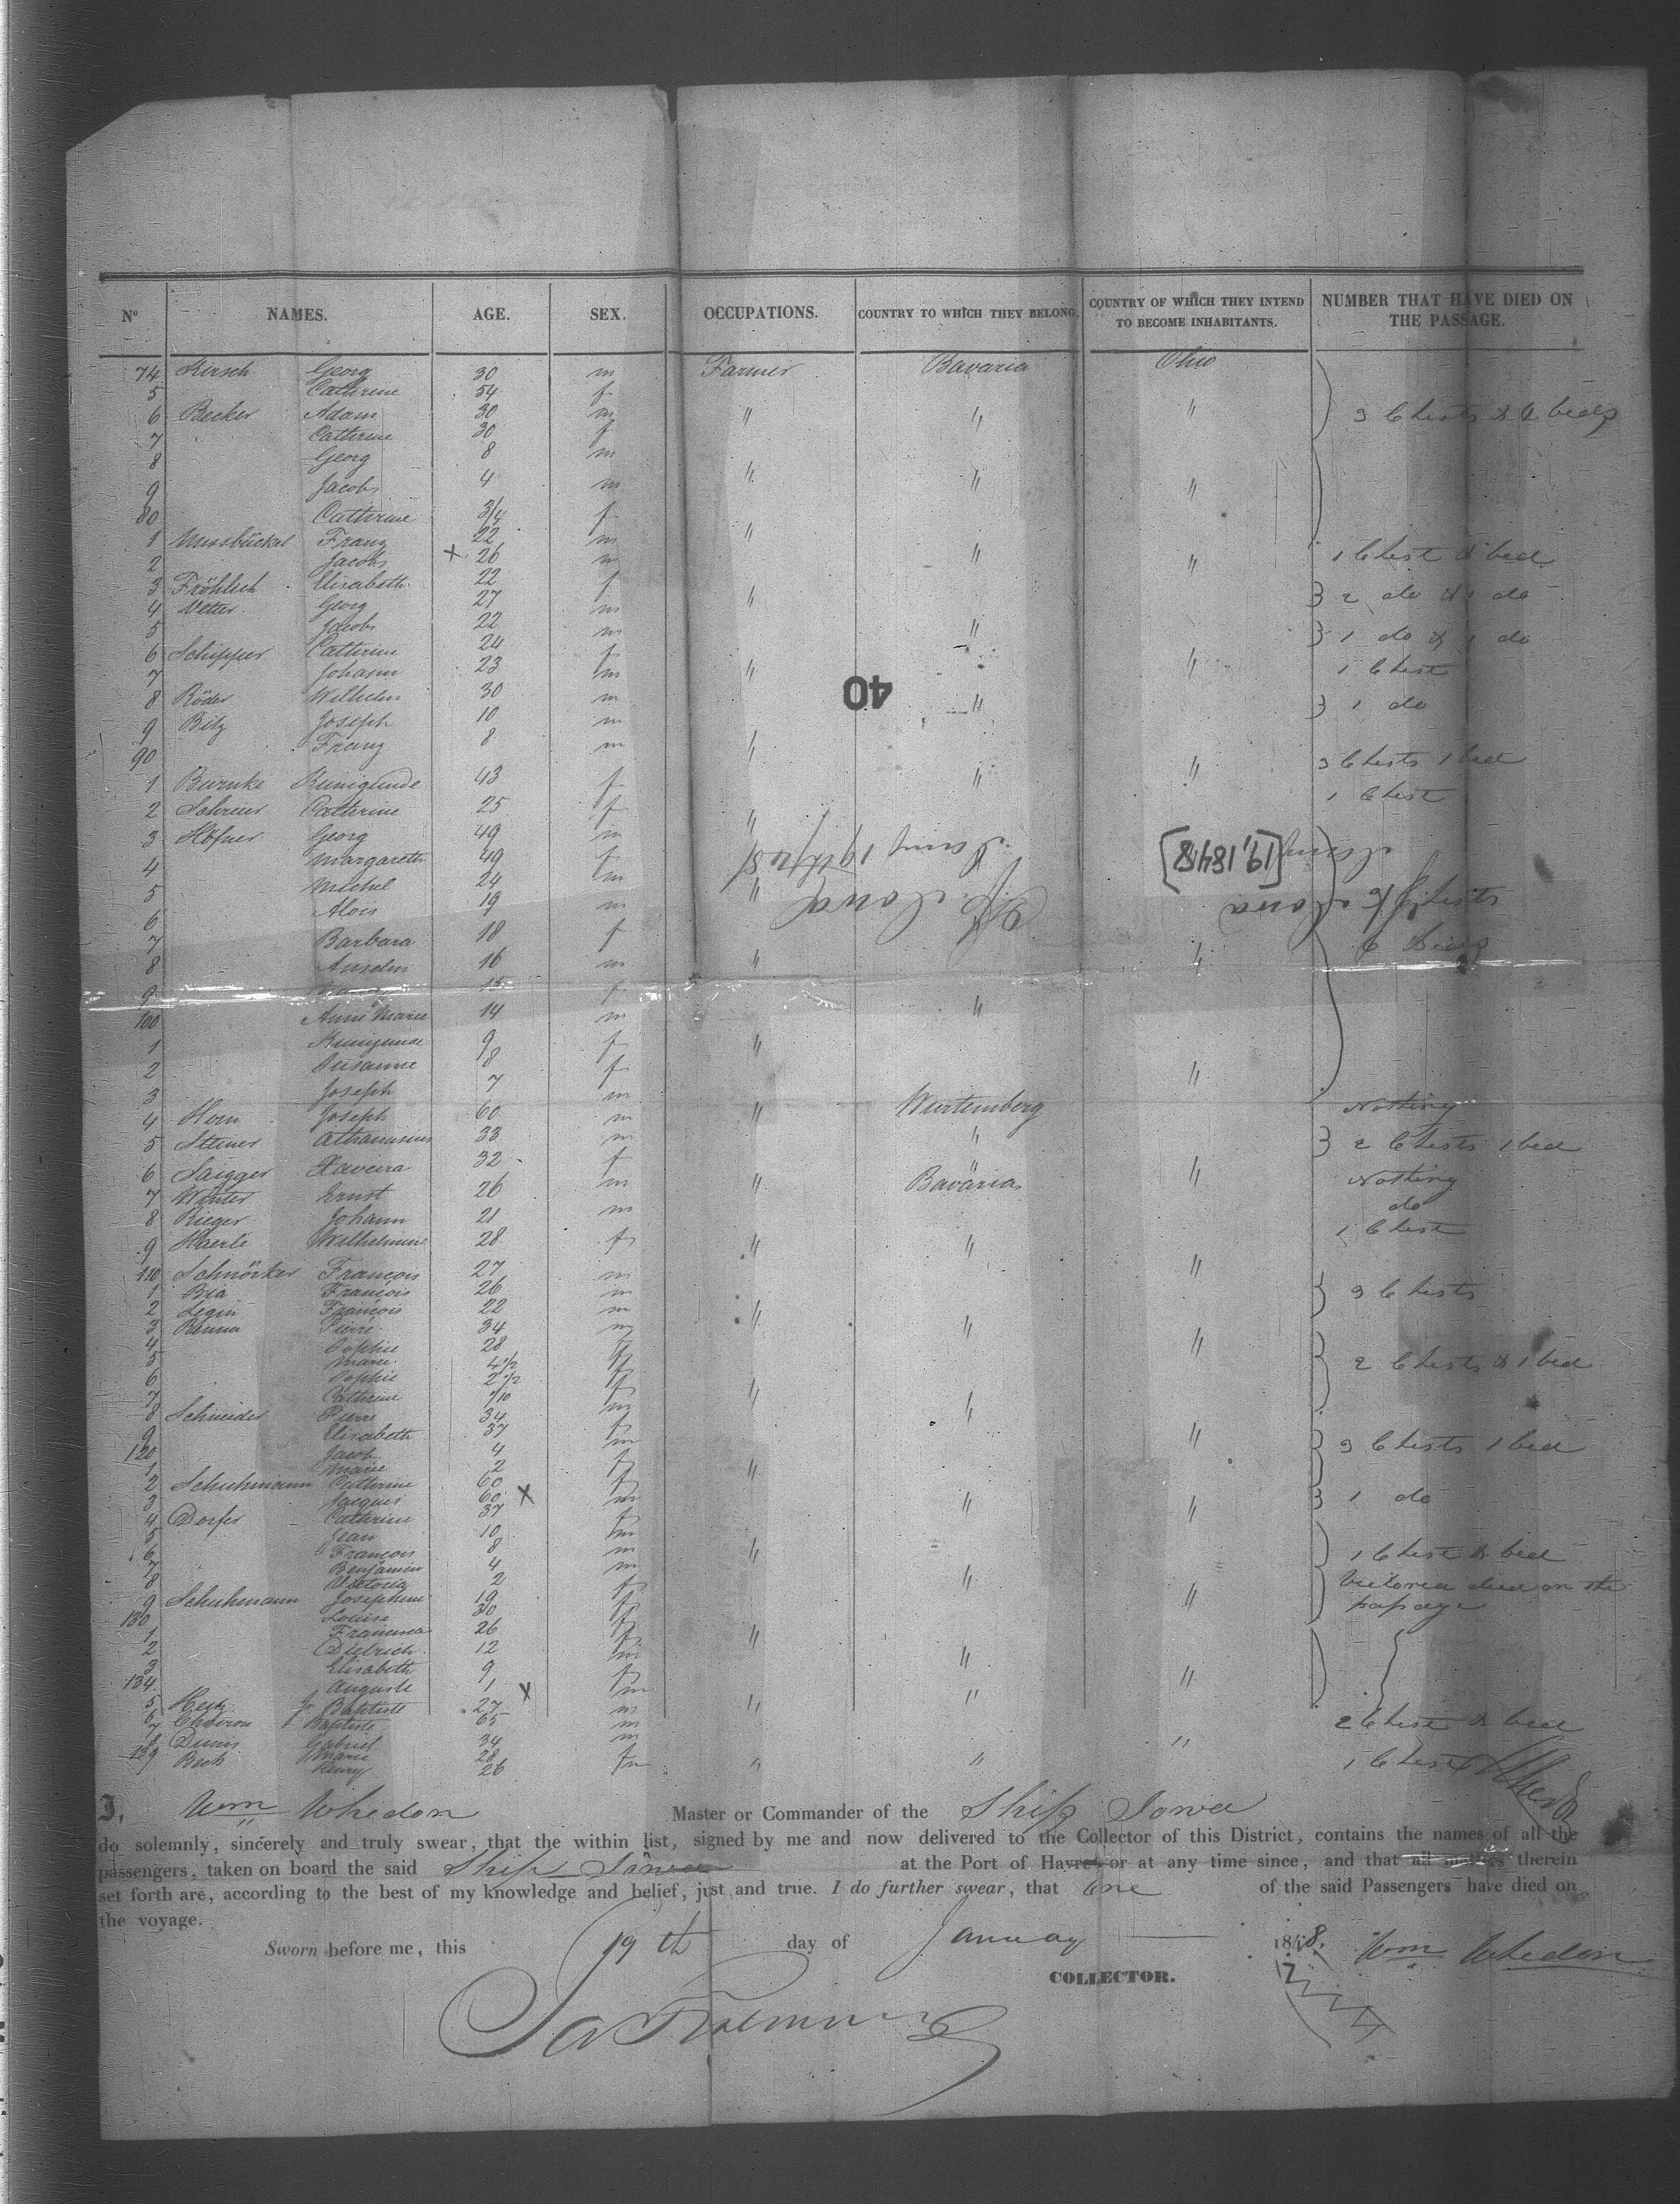 Nº NAMES. AGE. SEX. OCCUPATIONS. COUNTRY TO WHICH THEY BELONG. COUNTRY OF WHICH THEY INTEND TO BECOME INHABITANTS. NUMBER THAT HAVE DIED ON THE PASSAGE.
74 Kirsch Georg 30 m Farmer Bavaria Ohio
5 Catherine 54 f
6 Becker Adam 30 m " " " 3 Chests & 2 beds
7 Catherine 30 f
8 Georg 8 m
9 Jacob 4 m " " "
80 Catherine 3/4 f
1 Franz 22 m "
2 Jacob × 26 m " " 1 Chest & bed
3 Fröhlich Elisabeth 22 f
4 Vetter Georg 27 m " 2 do & 1 do
5 Jacob 22 m "
6 Schipper Catherine 24 f 1 do & 1 do
7 Johann 23 m " " 1 Chest
8 Röder Wilhelm 30 m " 1 do
9 Bitz Joseph 10 m
90 Franz 8 m "
1 Kunigunde 43 f " " 3 Chests 1 bed
2 Schreiner Catherine 25 f " 1 Chest
3 Höfner Georg 49 m
4 Margareth 49 f
5 Michel 24 m "
6 Alois 19 m Chests
7 Barbara 18 f 6 Beds
8 Anselm 16 m " "
9 15 f
100 Anne Marie 14 m "
1 Kunigunde 9 f "
2 Susanne 8 f "
3 Joseph 7 m
4 Horn Joseph 60 m " Wurtemberg Nothing
5 Athanasius 33 m " 2 Chests 1 bed
6 Saigger Xaveira 32 f "
7 Winter Ernst 26 m " Bavaria Nothing
8 Rieger Johann 21 m do
9 Haerle Wilhelmine 28 f " " 1 Chest
110 François 27 m "
1 Bra François 26 m 3 Chests
2 François 22 m "
3 Pierre 34 m "
4 Sophie 28 f "
5 Marie 4 1/2 f 2 Chests & 1 bed
6 Sophie 2 1/2 f
7 Catherine f "
8 Schneider Pierre 34 m "
9 Elisabeth 37 f "
120 Jacob 4 m 3 Chests 1 bed
1 Marie 2 f "
2 Schuhmann Catherine 60 f
3 Jacques 60 × m " " 1 do
4 Catherine 37 f
5 Jean 10 m
6 François 8 m " 1 Chest & bed
7 Benjamin 4 m
8 Victoria 2 f " Victoria died on the
9 Schuhmann Josephine 19 f " passage
130 Louise 30 f
1 Francisca 26 f "
2 Dietrich 12 m
3 Elisabeth 9 f "
134 Auguste 1 × m "
5 Baptiste 27 m " "
6 Baptiste 65 m 2 Chest & bed
7 Gabriel 34 m "
8 Marie 28 f
139 Beck Henry 26 m " " 1 Chest
40
Ship Iowa
Jany 19th 1848
[19, 1848]
Iowa
I, Wm Whedon Master or Commander of the Ship Iowa
do solemnly, sincerely and truly swear, that the within list, signed by me and now delivered to the Collector of this District, contains the names of all the
passengers, taken on board the said Ship Iowa at the Port of Havre or at any time since, and that all matters therein
set forth are, according to the best of my knowledge and belief, just and true. I do further swear, that One of the said Passengers have died on
the voyage.
Sworn before me, this 19th day of January 1848. Wm Whedon
COLLECTOR.